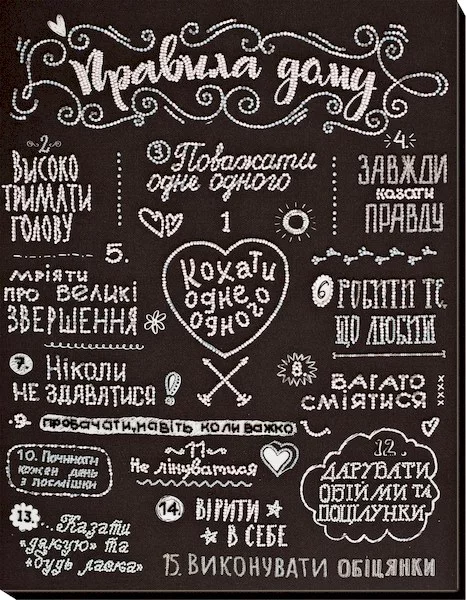 Правила дому
1
Кохати
одне
одного
2.
Високо
тримати
голову
3
Поважати
одне одного
4.
Завжди
казати
правду
5.
мріяти
про великі
звершення
6 Робити те,
що любити
7. Ніколи
не здаватися!
8.
Багато
сміятися
9. пробачати, навіть коли важко
10. Починати
кожен день
з посмішки
11
Не лінуватися
12.
Дарувати
обійми та
поцілунки
13 Казати
"дякую" та
"будь ласка"
14 Вірити
в себе
15. Виконувати обіцянки